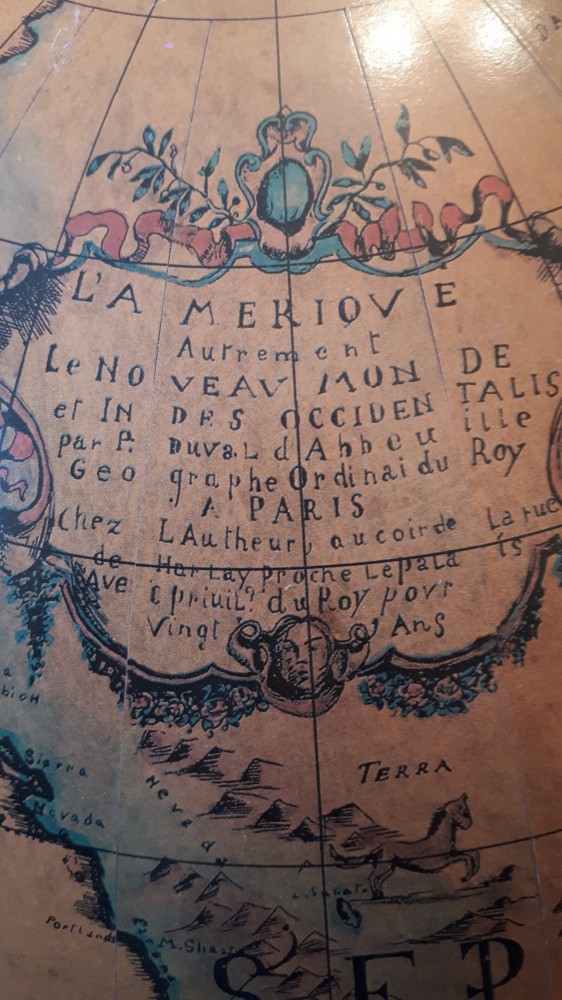 L'A MERIQVE
Autrement
Le NO VEAV MON DE
et IN DES OCCIDEN TALIS
par P. Duval d'Abbeu ille
Geo graphe Ordinai du Roy
A PARIS
Chez L'Autheur, au coirde La rue
de Harlay Proche Lepala is
Ave c priuil? du Roy povr
Vingt Ans
TERRA
Sierra
Nevada
M. Shas
SEP